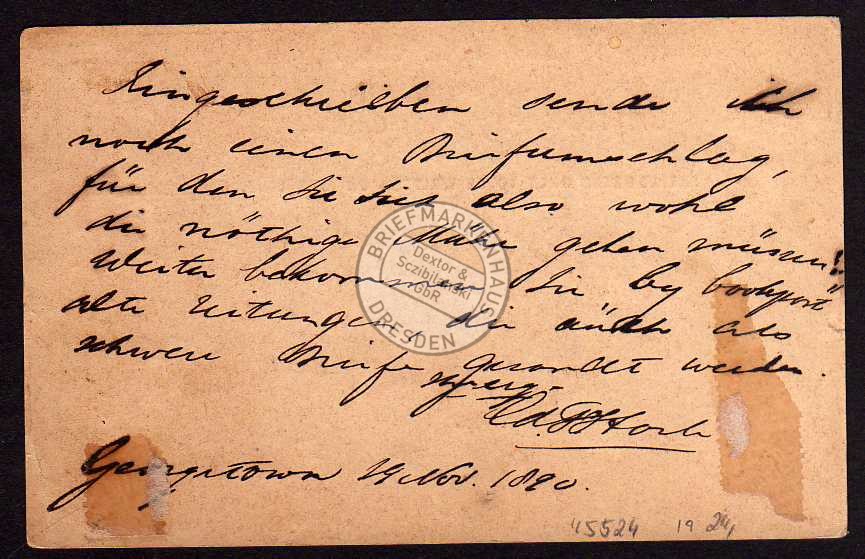 Eingeschrieben sende ich
noch einen Briefumschlag,
für den Sie Sich also wohl
die nöthige Mühe geben müssen!!
Weiter bekommen Sie "by bookpost"
alte Zeitungen, die auch als
schwere Briefe gesandt werden.
Georgetown 29 Nov. 1890.
45524 19
BRIEFMARKENHAUS
Dextor &
Sczibilanski
GbR
DRESDEN